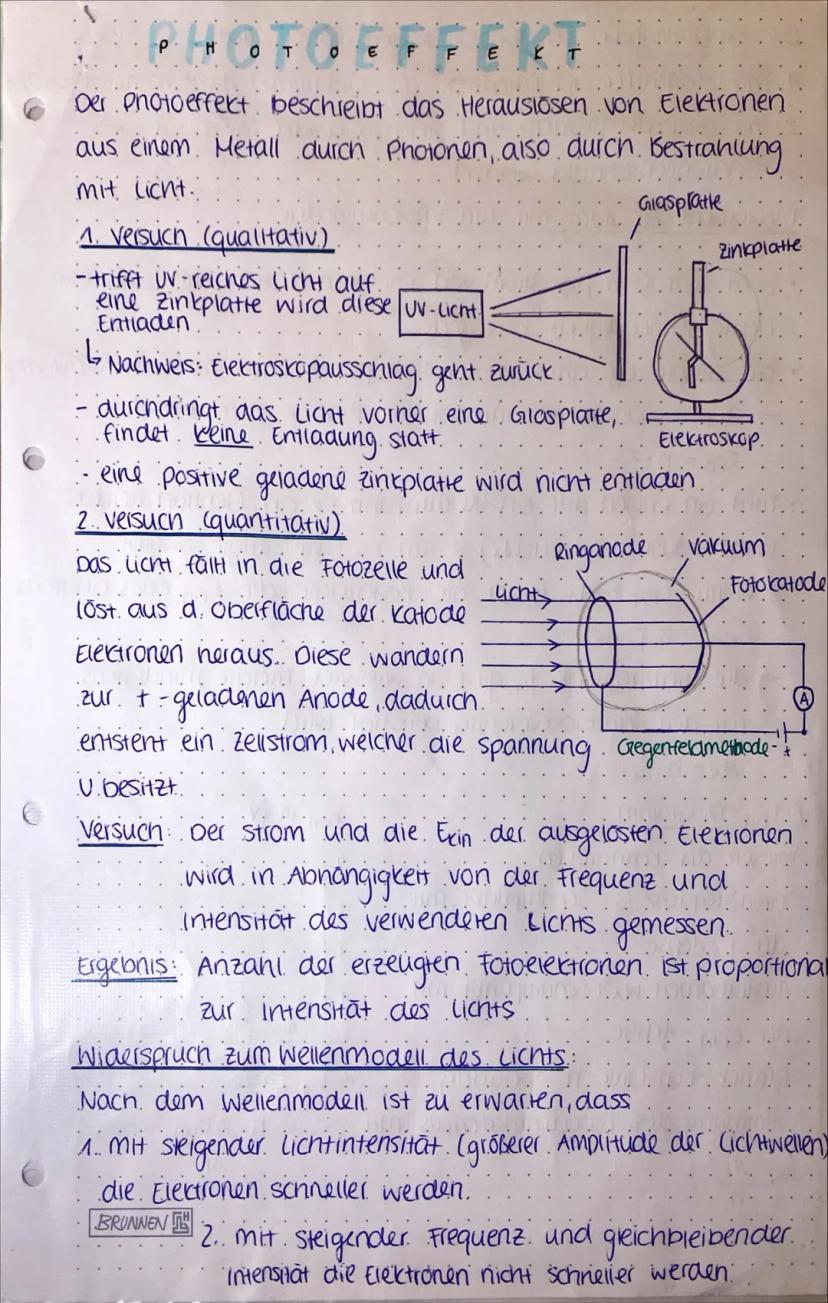 PHOTOEFFEKT
Der Photoeffekt beschreibt das Herauslösen von Elektronen
aus einem Metall durch Photonen, also durch Bestrahlung
mit Licht.
Glasplatte
1. Versuch (qualitativ)
Zinkplatte
- trifft UV-reiches Licht auf
eine Zinkplatte wird diese
Entladen
UV-Licht
↳ Nachweis: Elektroskopausschlag geht zurück
- durchdringt das Licht vorher eine Glasplatte,
findet keine Entladung statt
Elektroskop
- eine positive geladene Zinkplatte wird nicht entladen
2. Versuch (quantitativ)
Ringanode
Vakuum
Fotokatode
Licht
Das Licht fällt in die Fotozelle und
löst aus d. Oberfläche der Katode
Elektronen heraus. Diese wandern
zur + -geladenen Anode, dadurch
A
entsteht ein Zellstrom, welcher die Spannung
Gegenfeldmethode - +
U besitzt.
Versuch: Der Strom und die Ekin der ausgelösten Elektronen
wird in Abhängigkeit von der Frequenz und
Intensität des verwenderen Lichts gemessen.
Ergebnis: Anzahl der erzeugten Fotoelektronen ist proportional
zur Intensität des Lichts
Widerspruch zum Wellenmodell des Lichts:
Nach dem Wellenmodell ist zu erwarten, dass
1. mit steigender Lichtintensität (größerer Amplitude der Lichtwellen)
die Elektronen schneller werden.
BRUNNEN
2. mit steigender Frequenz und gleichbleibender
Intensität die Elektronen nicht schneller werden.